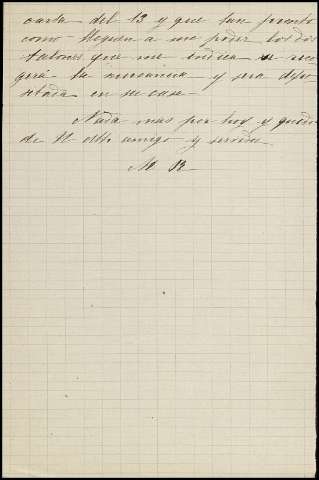 carta del 13 y que tan pronto
como lleguen a mi poder los dos
talones que me indica se reco
gerá la mercancia y sera depo
sitada en su casa.
Nada mas por hoy y queda
de V. affmo amigo y servidor
M B